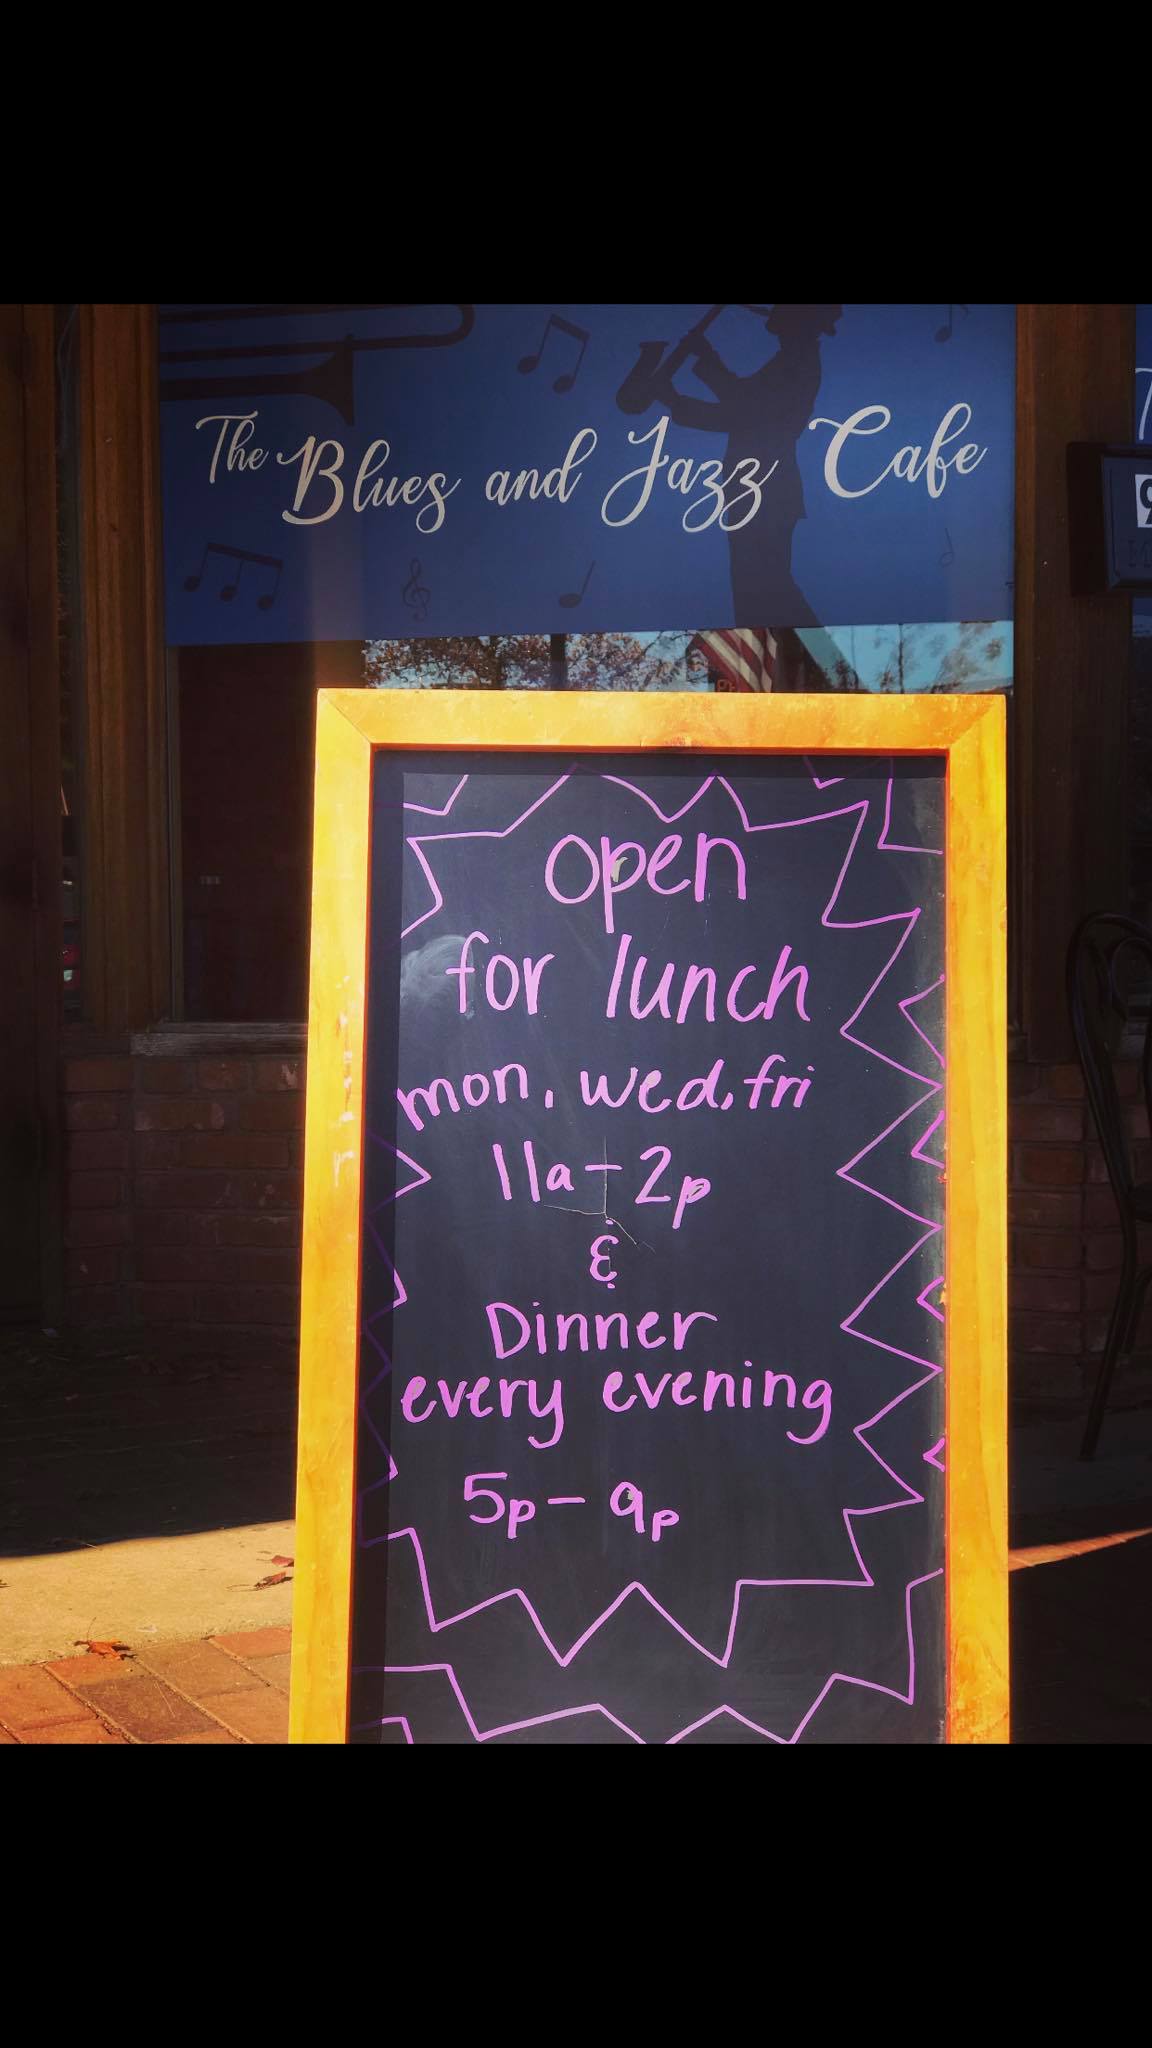 The Blues and Jazz Cafe
open
for lunch
mon, wed, fri
11a - 2p
&
Dinner
every evening
5p - 9p